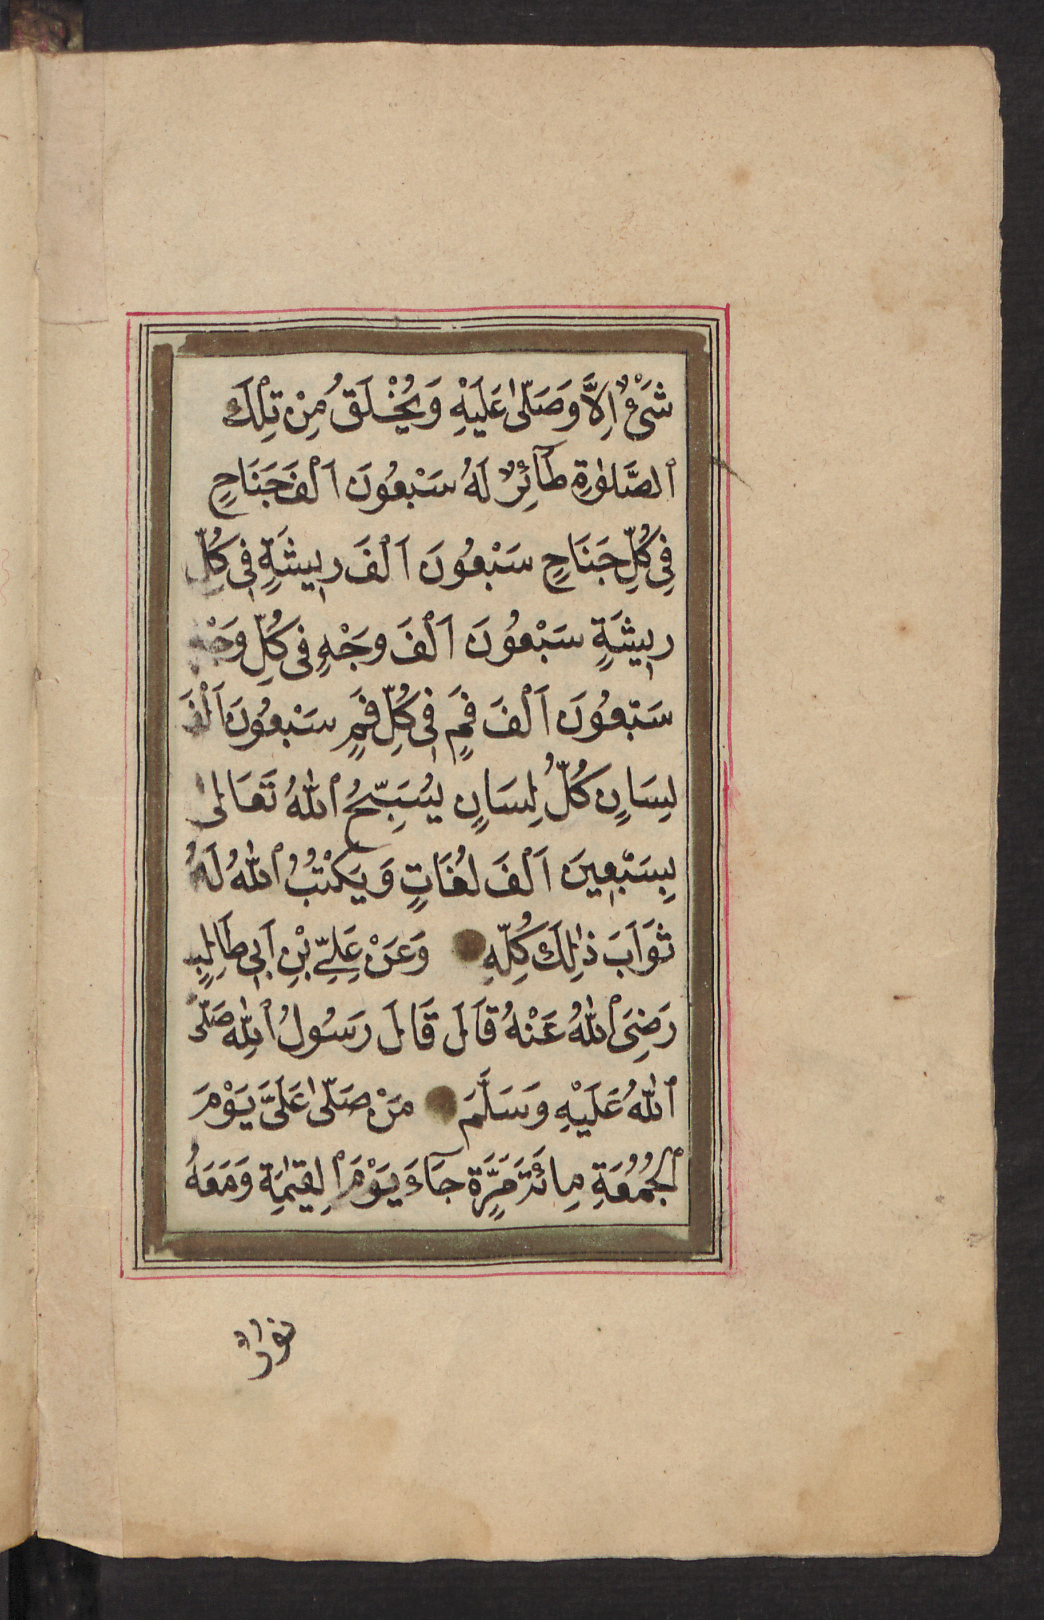 شَيْءٌ اِلَّا وَصَلّٰى عَلَيْهِ وَيُخْلَقُ مِنْ تِلْكَ
ٱلصَّلٰوةِ طَآئِرٌ لَهُ سَبْعُونَ اَلْفَ جَنَاحٍ
فِي كُلِّ جَنَاحٍ سَبْعُونَ اَلْفَ رِيشَةٍ فِي كُلِّ
رِيشَةٍ سَبْعُونَ اَلْفَ وَجْهٍ فِي كُلِّ وَجْهٍ
سَبْعُونَ اَلْفَ فَمٍ فِي كُلِّ فَمٍ سَبْعُونَ اَلْفَ
لِسَانٍ كُلُّ لِسَانٍ يُسَبِّحُ ٱللّٰهُ تَعَالٰى
بِسَبْعِينَ اَلْفَ لُغَاتٍ وَيَكْتُبُ ٱللّٰهُ لَهُ
ثَوَابَ ذٰلِكَ كُلِّهِ وَعَنْ عَلِيِّ بْنِ اَبِي طَالِبٍ
رَضِيَ ٱللّٰهُ عَنْهُ قَالَ قَالَ رَسُولُ ٱللّٰهِ صَلَّى
ٱللّٰهُ عَلَيْهِ وَسَلَّمَ مَنْ صَلّٰى عَلَيَّ يَوْمَ
ٱلْجُمُعَةِ مِائَةَ مَرَّةٍ جَآءَ يَوْمَ ٱلْقِيٰمَةِ وَمَعَهُ
نُورٌ